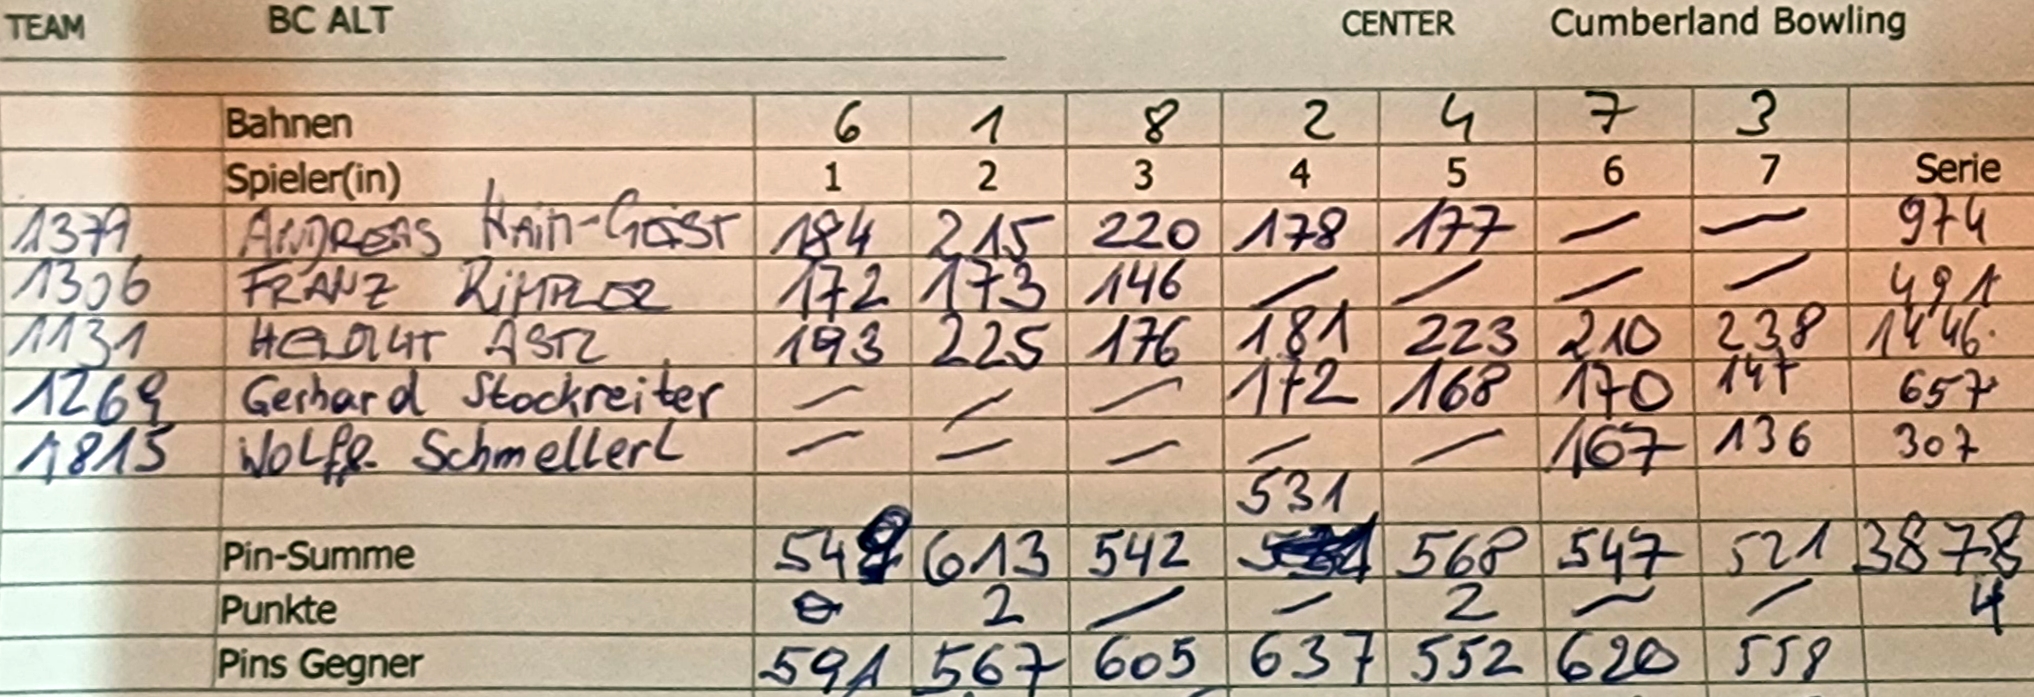 TEAM BC ALT CENTER Cumberland Bowling
Bahnen 6 1 8 2 4 7 3
Spieler(in) 1 2 3 4 5 6 7 Serie
1379 ANDREAS 184 215 220 178 177 – – 974
1306 FRANZ 172 173 146 – – – – 491
1131 HELMUT 193 225 176 181 223 210 238 1446
1269 Gerhard Stockreiter – – – 172 168 170 147 657
1815 Wolfg. Schmellerl – – – – – 167 136 307
531
Pin-Summe 549 613 542 568 547 521 3878
Punkte 0 2 – – 2 – – 4
Pins Gegner 591 567 605 637 552 620 558